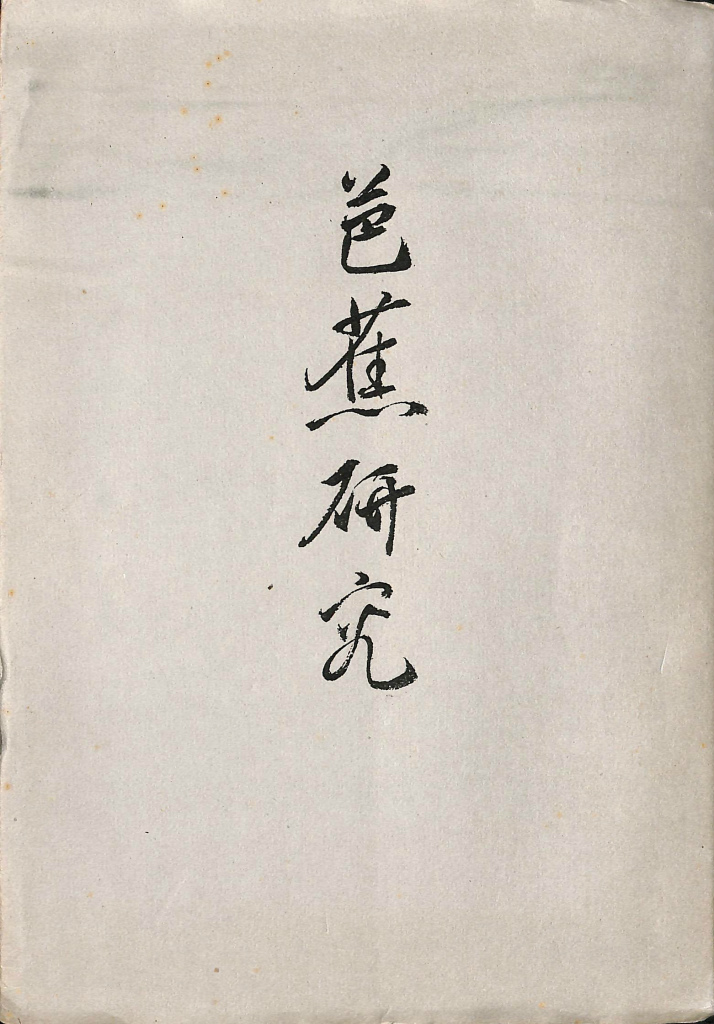 芭蕉研究